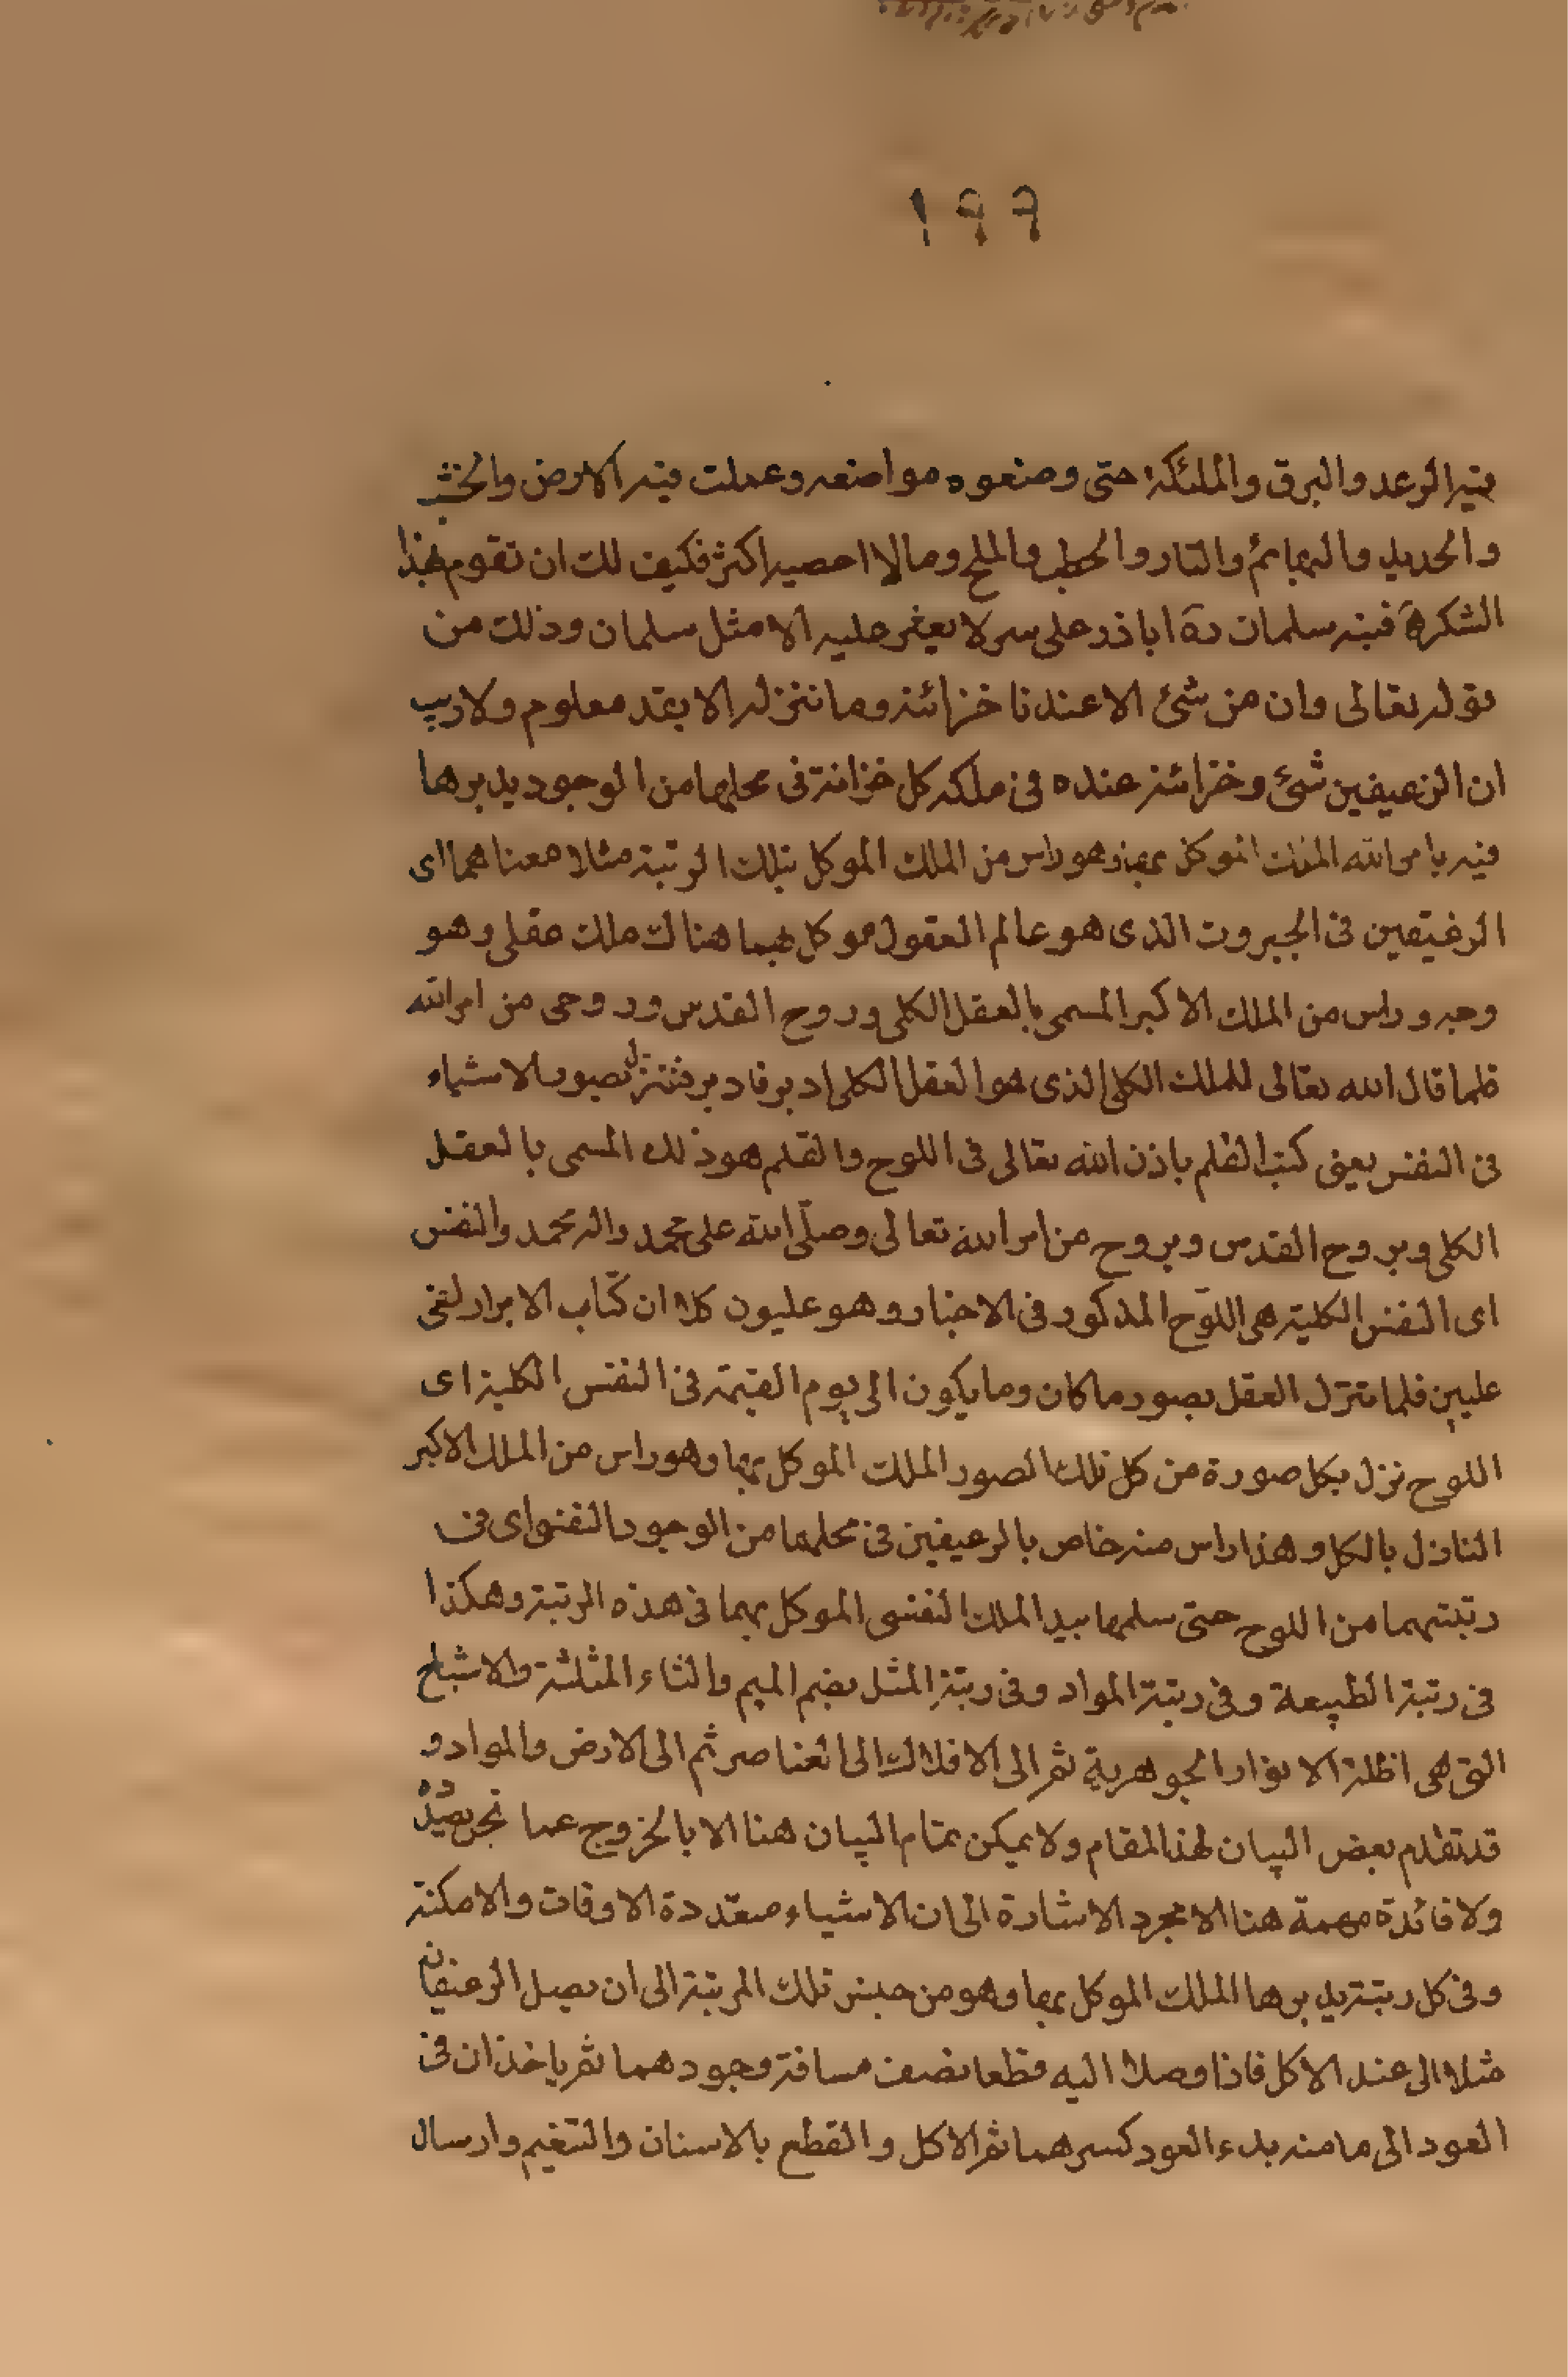 ١٩٩
فيه الرعد والبرق والملئكة حتى وضعوه مواضعه وعملت فيه الارض والخشب
والحديد والبهائم والنار والحطب والملح وما لا احصيه اكثر فكيف لك ان تقوم بهذا
الشكر فنبه سلمان ره اباذر على سر لا يعثر عليه الا مثل سلمان وذلك من
قوله تعالى وان من شئ الا عندنا خزائنه وما ننزله الا بقدر معلوم ولا ريب
ان الرغيفين شئ وخزائنه عنده فى ملكه كل خزانة فى محلها من الوجود يدبرها
فيه بامر الله الملك الموكل بها وهو راس من الملك الموكل بتلك الرتبة مثلا معناهما اى
الرغيفين فى الجبروت الذى هو عالم العقول موكل بهما هناك ملك عقلى وهو
وجه وراس من الملك الاكبر المسمى بالعقل الكلى وروح القدس وروحى من امر الله
فلما قال الله تعالى للملك الكلى الذى هو العقل الكلى ادبر فادبر فتنزل بصور الاشياء
فى النفس يعنى كتب القلم باذن الله تعالى فى اللوح والقلم هو ذلك المسمى بالعقل
الكلى وبروح القدس وبروح من امر الله تعالى وصلّى الله على محمد واله محمد والنفس
اى النفس الكلية هى اللوح المذكور فى الاخبار وهو عليون كلا ان كتاب الابرار لفى
عليين فلما تنزل العقل بصور ما كان وما يكون الى يوم القيمة فى النفس الكلية اى
اللوح نزل بكل صورة من كل تلك الصور الملك الموكل بها وهو راس من الملك الاكبر
النازل بالكل وهذا راس منه خاص بالرغيفين فى محلهما من الوجود النفسى اى فى
رتبتهما من اللوح حتى سلمها بيد الملك النفسى الموكل بهما فى هذه الرتبة وهكذا
فى رتبة الطبيعة وفى رتبة المواد وفى رتبة المثل بضم الميم والثاء المثلثة والاشباح
التى هى اظلة الانوار الجوهرية ثم الى الافلاك الى العناصر ثم الى الارض والمواد و
قد تقدم بعض البيان لهذا المقام ولا يمكن تمام البيان هنا الا بالخروج عما نحن بصدده
ولا فائدة مهمة هنا الا مجرد الاشارة الى ان الاشياء متعددة الاوقات والامكنة
وفى كل رتبة يدبرها الملك الموكل بها وهو من جنس تلك المرتبة الى ان يصل الرغيفان
مثلا الى عند الاكل فاذا وصلا اليه قطعا نصف مسافة وجودهما ثم ياخذان فى
العود الى ما منه بدء العود كسرهما ثم الاكل والقطع بالاسنان والتنعيم وارسال